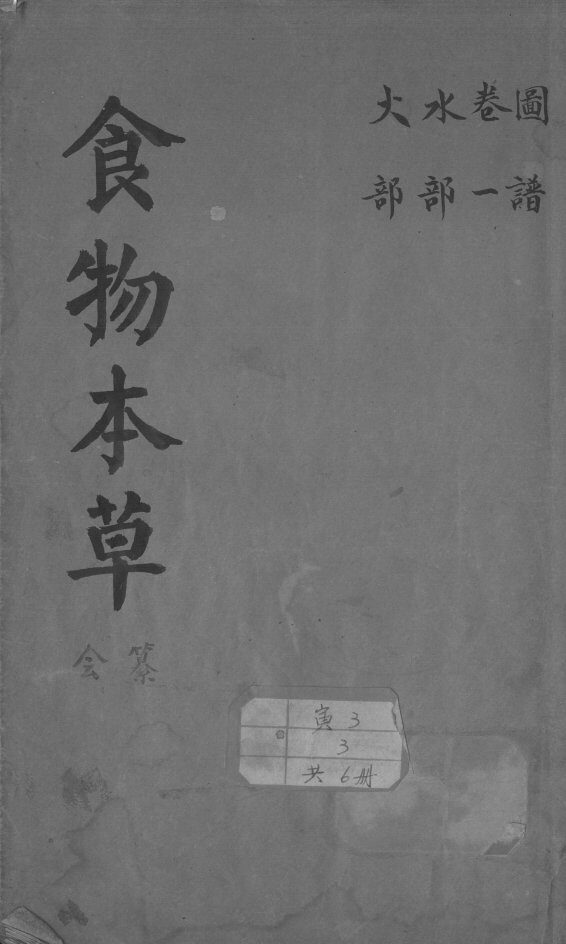 圖譜
卷一
水部
火部
食物本草
会纂
寅3
3
共6册